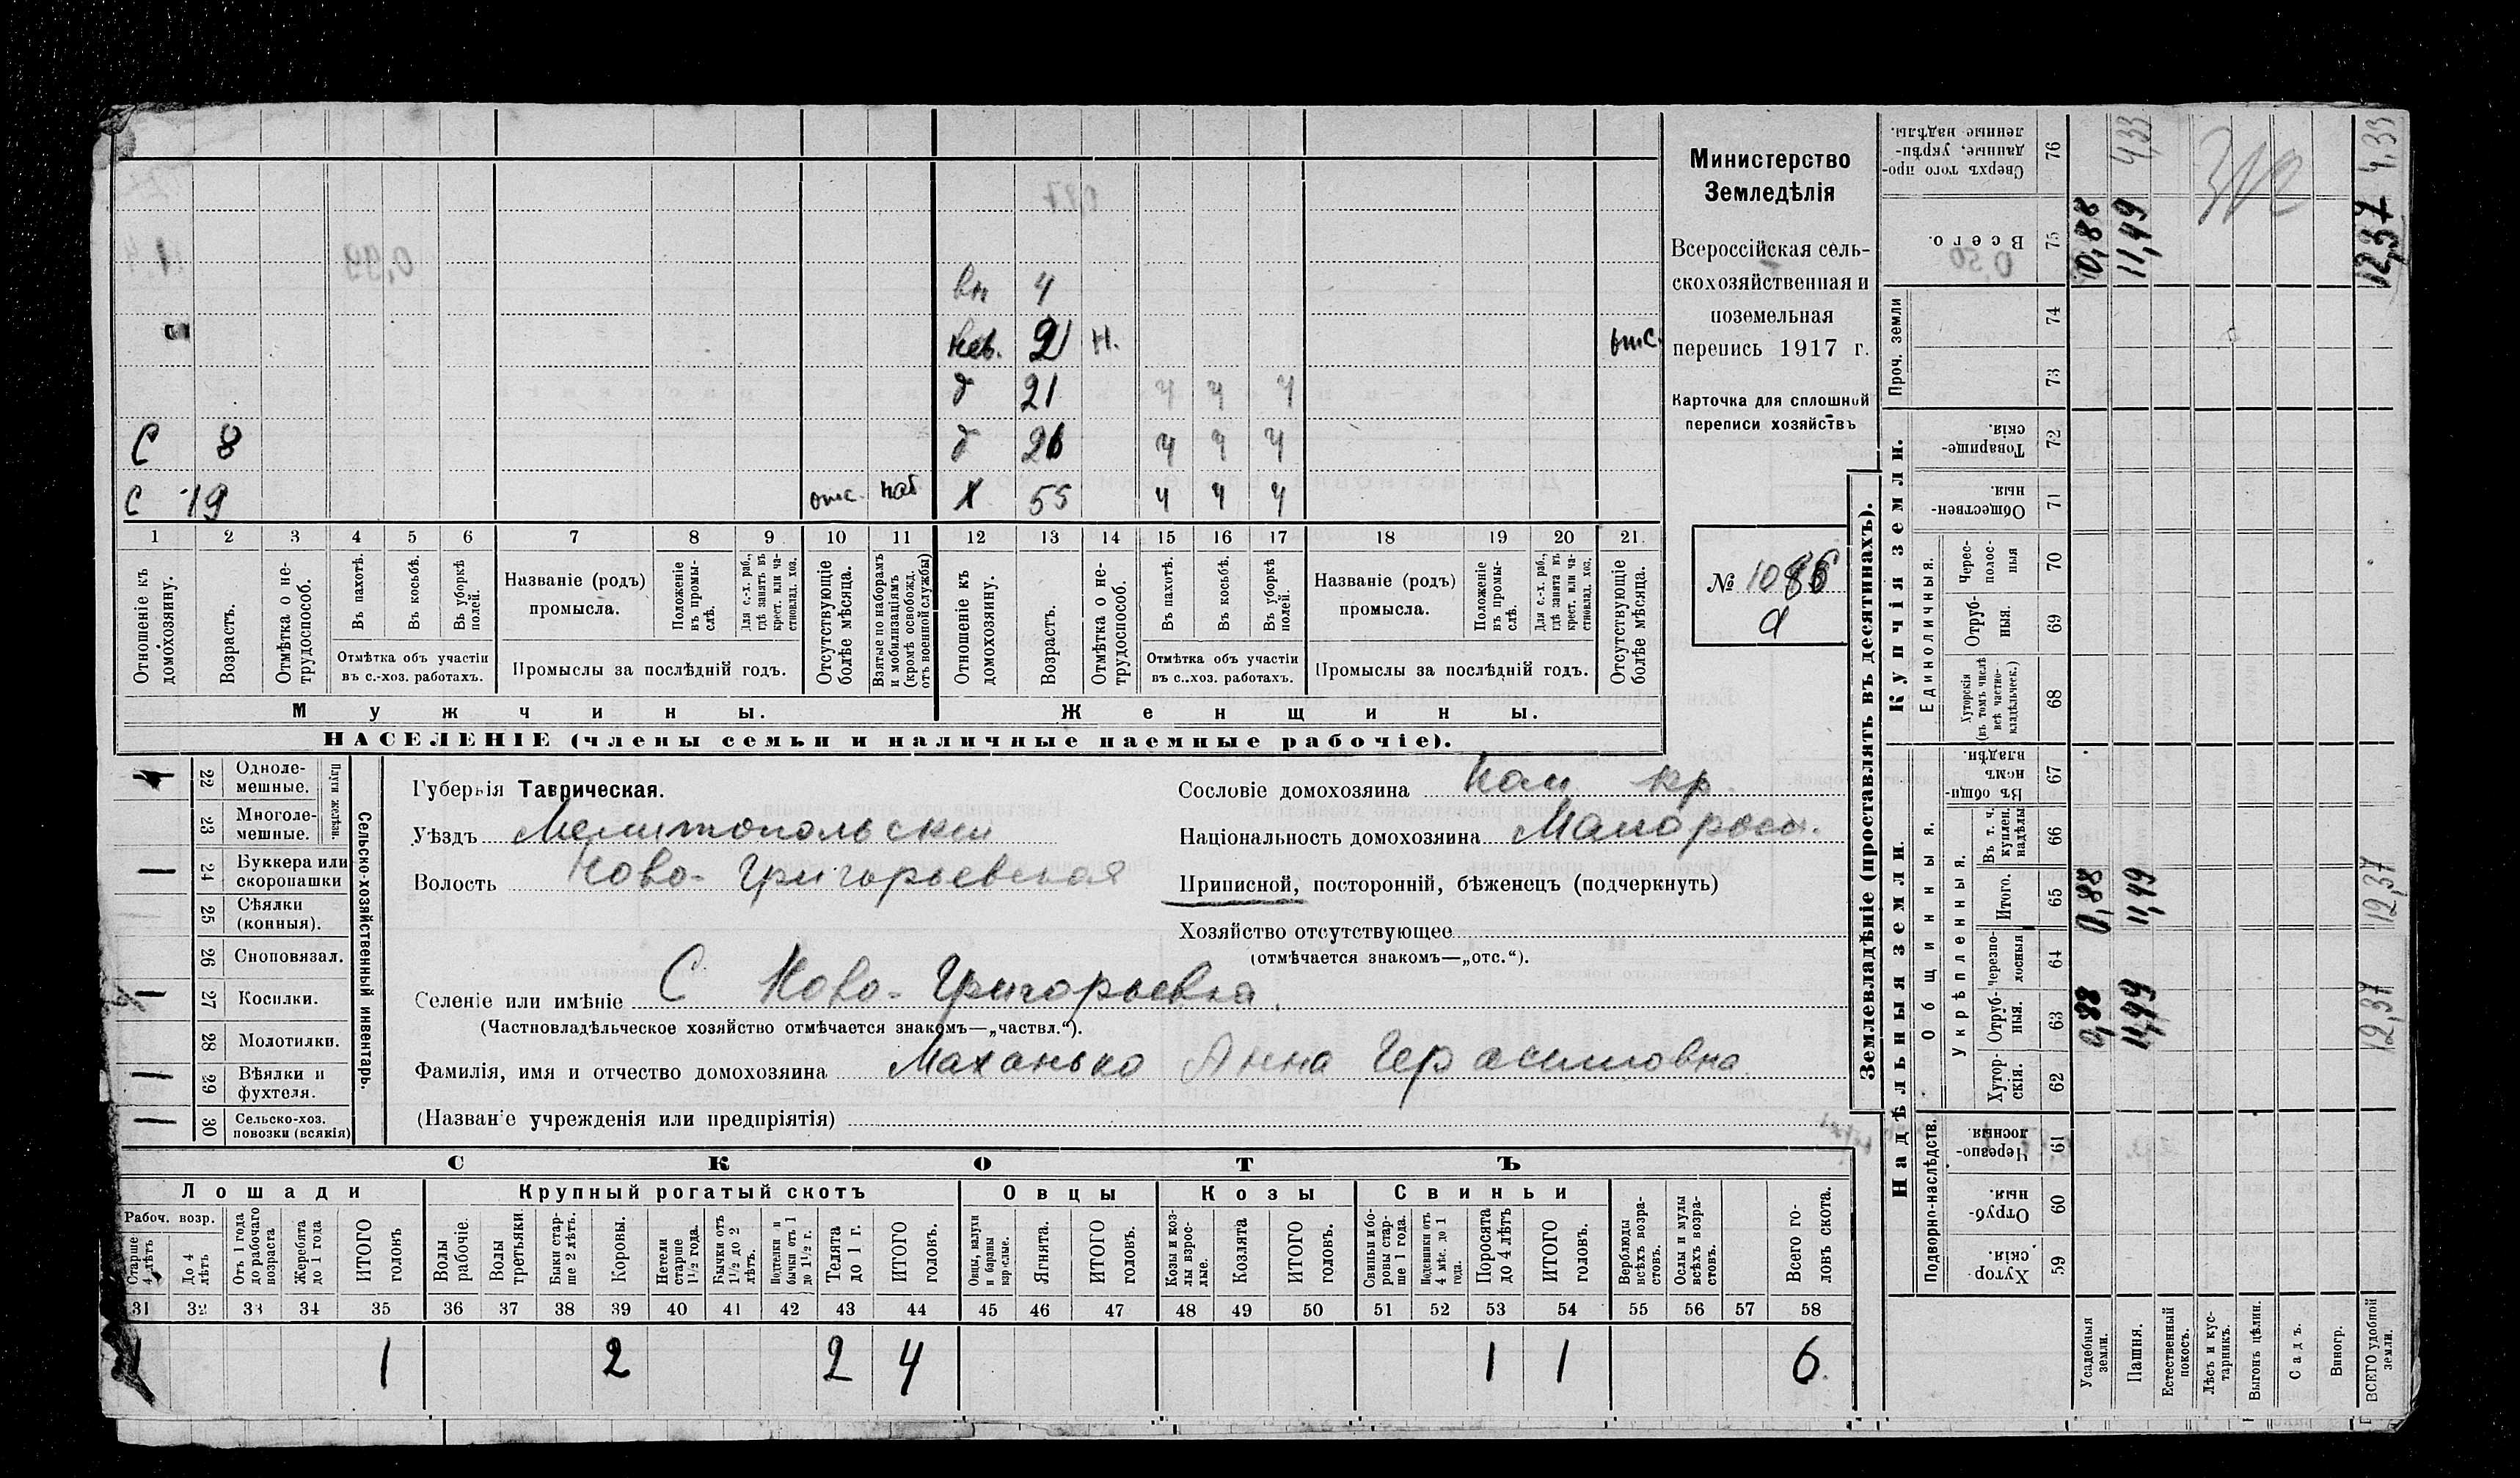 вн 4
нев. 21 н. отс.
д 21 ч ч ч
С 8 д 26 ч ч ч
С 19 отс. наб х 55 ч ч ч
1 2 3 4 5 6 7 8 9 10 11 12 13 14 15 16 17 18 19 20 21.
Отношеніе къ домохозяину.
Возрастъ.
Отмѣтка о не-трудоспособ.
Въ пахотѣ.
Въ косьбѣ.
Въ уборкѣ полей.
Отмѣтка объ участіи
въ с.-хоз. работахъ.
Названіе (родъ)
промысла.
Положеніе въ промы-слѣ.
Для с.-х. раб., гдѣ занятъ въ крест. или ча-стновлад. хоз.
Промыслы за послѣдній годъ.
Отсутствующіе болѣе мѣсяца.
Взятые по наборамъ и мобилизаціямъ (кромѣ освобожд. отъ военной службы)
Отношеніе къ домохозяину.
Возрастъ.
Отмѣтка о не-трудоспособ.
Въ пахотѣ.
Въ косьбѣ.
Въ уборкѣ полей.
Отмѣтка объ участіи
въ с..хоз. работахъ.
Названіе (родъ)
промысла.
Положеніе въ промы-слѣ.
Для с.-х. раб., гдѣ занята въ крест. или ча-стновлад. хоз.
Промыслы за послѣдній годъ.
Отсутствующіе болѣе мѣсяца.
Мужчины. Женщины.
НАСЕЛЕНІЕ (члены семьи и наличные наемные рабочіе).
Министерство
Земледѣлія
Всероссійская сель-
скохозяйственная и
поземельная
перепись 1917 г.
Карточка для сплошной
переписи хозяйствъ
№ 1086
а
22 Одноле-мешные.
23 Многоле-мешные.
Плуги желѣзн.
24 Буккера или скоропашки
25 Сѣялки (конныя).
26 Сноповязал.
27 Косилки.
28 Молотилки.
29 Вѣялки и фухтеля.
30 Сельско-хоз. повозки (всякія)
Сельско-хозяйственный инвентарь.
Губернія Таврическая.
Уѣздъ Мелитопольский
Волость Ново-Григорьевская
Селеніе или имѣніе С Ново-Григорьевка.
(Частновладѣльческое хозяйство отмѣчается знакомъ—„частвл.“).
Фамилія, имя и отчество домохозяина Маханько Анна Герасимовна
(Названіе учрежденія или предпріятія)
Сословіе домохозяина кр.
Національность домохозяина Малоросс.
Приписной, посторонній, бѣженецъ (подчеркнуть)
Хозяйство отсутствующее
(отмѣчается знакомъ—„отс.“).
СКОТЪ
Лошади Крупный рогатый скотъ Овцы Козы Свиньи
Рабоч. возр.
Старше 4 лѣтъ
До 4 лѣтъ
Отъ 1 года до рабочаго возраста
Жеребята до 1 года
ИТОГО головъ
Волы рабочіе.
Волы третьяки.
Быки стар-ше 2 лѣтъ.
Коровы.
Нетели старше 1½ года.
Бычки отъ 1½ до 2 лѣтъ.
Подтелки и бычки отъ 1 до 1½ г.
Телята до 1 г.
ИТОГО головъ.
Овцы, валухи и бараны взрослые.
Ягнята.
ИТОГО головъ.
Козы и коз-лы взрос-лые.
Козлята
ИТОГО головъ.
Свиньи и бо-ровы стар-ше 1 года.
Подсвинки отъ 4 мѣс. до 1 года.
Поросята до 4 лѣтъ
ИТОГО головъ.
Верблюды всѣхъ возра-стовъ.
Ослы и мулы всѣхъ возра-стовъ.
Всего го-ловъ скота.
31 32 33 34 35 36 37 38 39 40 41 42 43 44 45 46 47 48 49 50 51 52 53 54 55 56 57 58
1 1 2 2 4 1 1 6.
Землевладѣніе (проставлять въ десятинахъ).
Надѣльныя земли. Купчія земли. Проч. земли
Подворно-наслѣдств. Общинныя. Единоличныя.
Укрѣпленныя.
76 Сверхъ того про-данные, укрѣп-ленные надѣлы.
75 Всего.
74
73
72 Товарище-скія.
71 Обществен-ныя.
70 Черес-полос-ныя
69 Отруб-ныя.
68 Хуторскія (въ томъ числѣ всѣ частно-владѣльческ.)
67 Въ общи-номъ владѣн.
66 Въ т. ч. куплен. надѣлы
65 Итого.
64 Черезпо-лосныя
63 Отруб-ныя.
62 Хутор-скія.
61 Черезпо-лосныя.
60 Отруб-ныя.
59 Хутор-скія.
Усадебныя земли. 0,88 0,88 0,88
Пашня. 11,49 11,49 11,49 4,33
Естественный покосъ.
Лѣсъ и кус-тарникъ.
Выгонъ цѣлин.
Садъ.
Виногр.
ВСЕГО удобной земли. 12,37 12,37 12,37 4,33